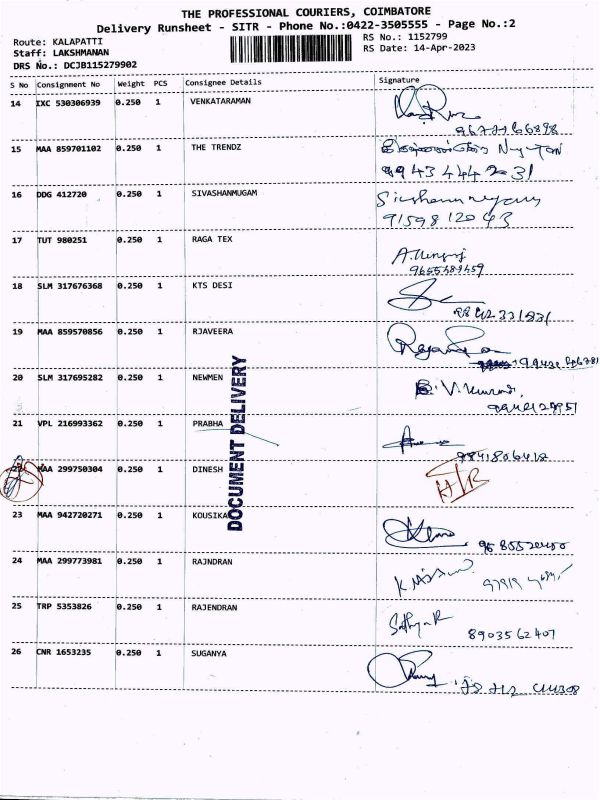 THE PROFESSIONAL COURIERS, COIMBATORE
Delivery Runsheet - SITR - Phone No.:0422-3505555 - Page No.:2
Route: KALAPATTI
Staff: LAKSHMANAN
DRS No.: DCJB115279902
RS No.: 1152799
RS Date: 14-Apr-2023
S No Consignment No Weight PCS Consignee Details Signature
14 IXC 530306939 0.250 1 VENKATARAMAN
15 MAA 859701102 0.250 1 THE TRENDZ
9943444231
16 DDG 412720 0.250 1 SIVASHANMUGAM
9159812043
17 TUT 980251 0.250 1 RAGA TEX
18 SLM 317676368 0.250 1 KTS DESI
19 MAA 859570856 0.250 1 RJAVEERA
20 SLM 317695282 0.250 1 NEWMEN
21 VPL 216993362 0.250 1 PRABHA
MAA 299750304 0.250 1 DINESH
23 MAA 942720271 0.250 1 KOUSIKA
24 MAA 299773981 0.250 1 RAJNDRAN
25 TRP 5353826 0.250 1 RAJENDRAN
8903562407
26 CNR 1653235 0.250 1 SUGANYA
DOCUMENT DELIVERY